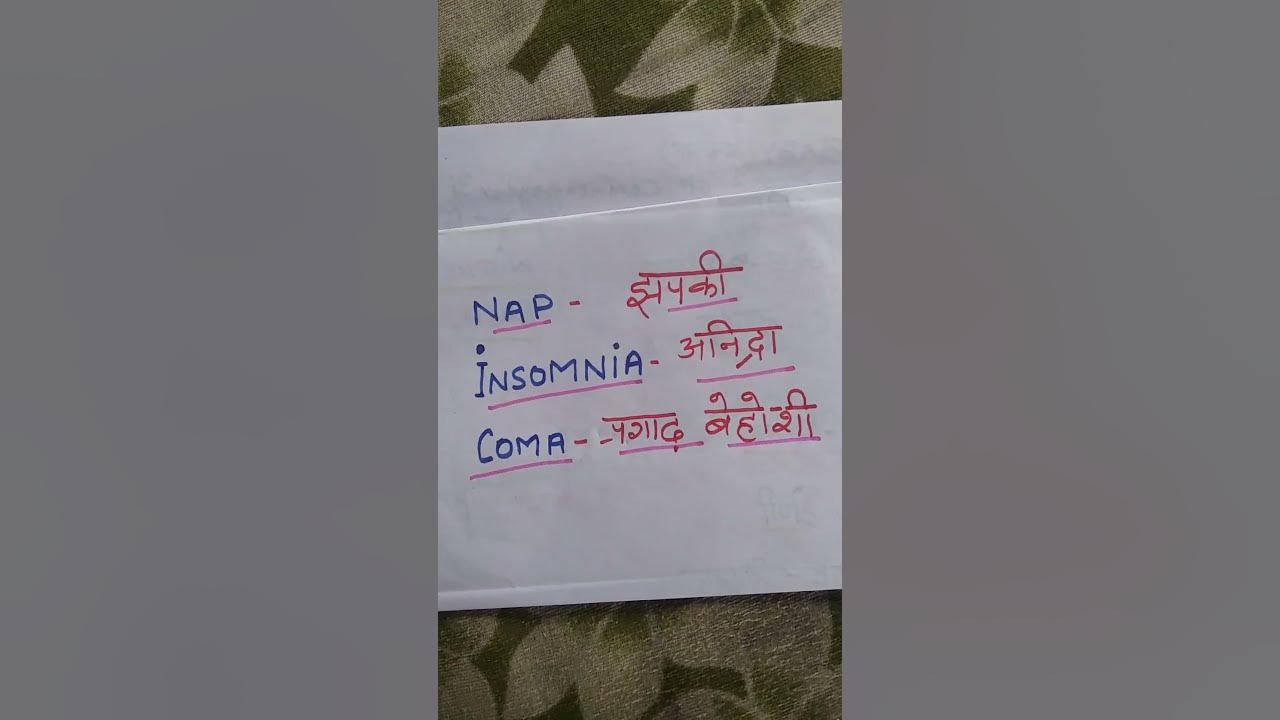 NAP - झपकी
iNSOMNiA - अनिद्रा
COMA - - पगाढ़ बेहोशी